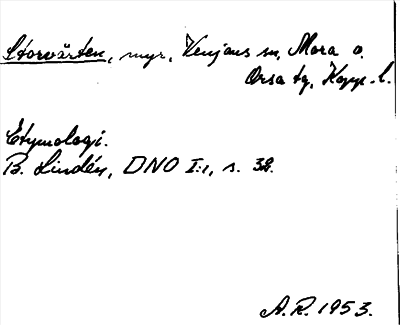 Storvärten, myr, Venjans sn, Mora o.
Orsa tg, Kopp. l.
Etymologi.
B. Lindén, DNO I:1, s. 38.
A.R. 1953.